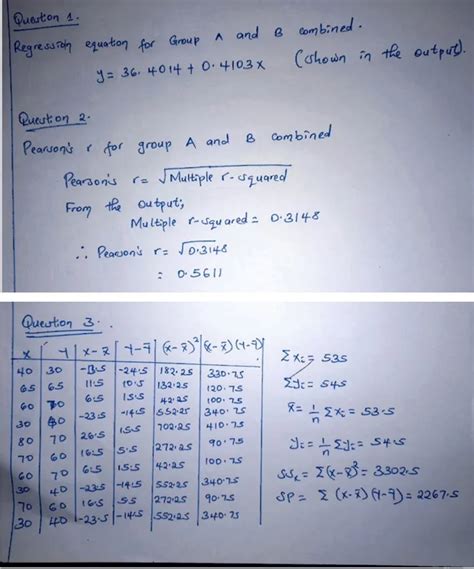 Question 1.
Regression equation for Group A and B combined.
y = 36.4014 + 0.4103x (shown in the output).
Question 2.
Pearson's r for group A and B combined
Pearson's r = √Multiple r-squared
From the output;
Multiple r-squared = 0.3148
∴ Pearson's r = √0.3148
= 0.5611
Question 3.
x y x-x̄ y-ȳ (x-x̄)² (x-x̄)(y-ȳ)
40 30 -13.5 -24.5 182.25 330.75
65 65 11.5 10.5 132.25 120.75
60 70 6.5 15.5 42.25 100.75
30 40 -23.5 -14.5 552.25 340.75
80 70 26.5 15.5 702.25 410.75
70 60 16.5 5.5 272.25 90.75
60 70 6.5 15.5 42.25 100.75
30 40 -23.5 -14.5 552.25 340.75
70 60 16.5 5.5 272.25 90.75
30 40 -23.5 -14.5 552.25 340.75
Σxi = 535
Σyi = 545
x̄ = 1/n Σxi = 53.5
yi = 1/n Σyi = 54.5
SSx = Σ(x-x̄)² = 3302.5
SP = Σ(x-x̄)(y-ȳ) = 2267.5